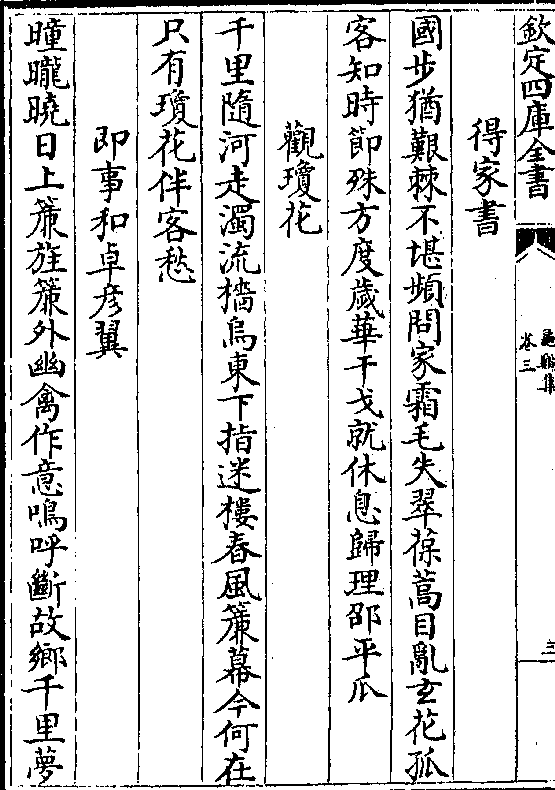 欽定四庫全書
卷三
得家書
國步猶艱棘不堪頻問家霜毛失翠葆蒿目亂玄花孤
客知時節殊方度歲華干戈就休息歸理邵平瓜
觀瓊花
千里隨河走濁流檣烏東下指迷樓春風簾幕今何在
只有瓊花伴客愁
即事和卓彥翼
曈曨曉日上簾旌簾外幽禽作意鳴呼斷故鄉千里夢